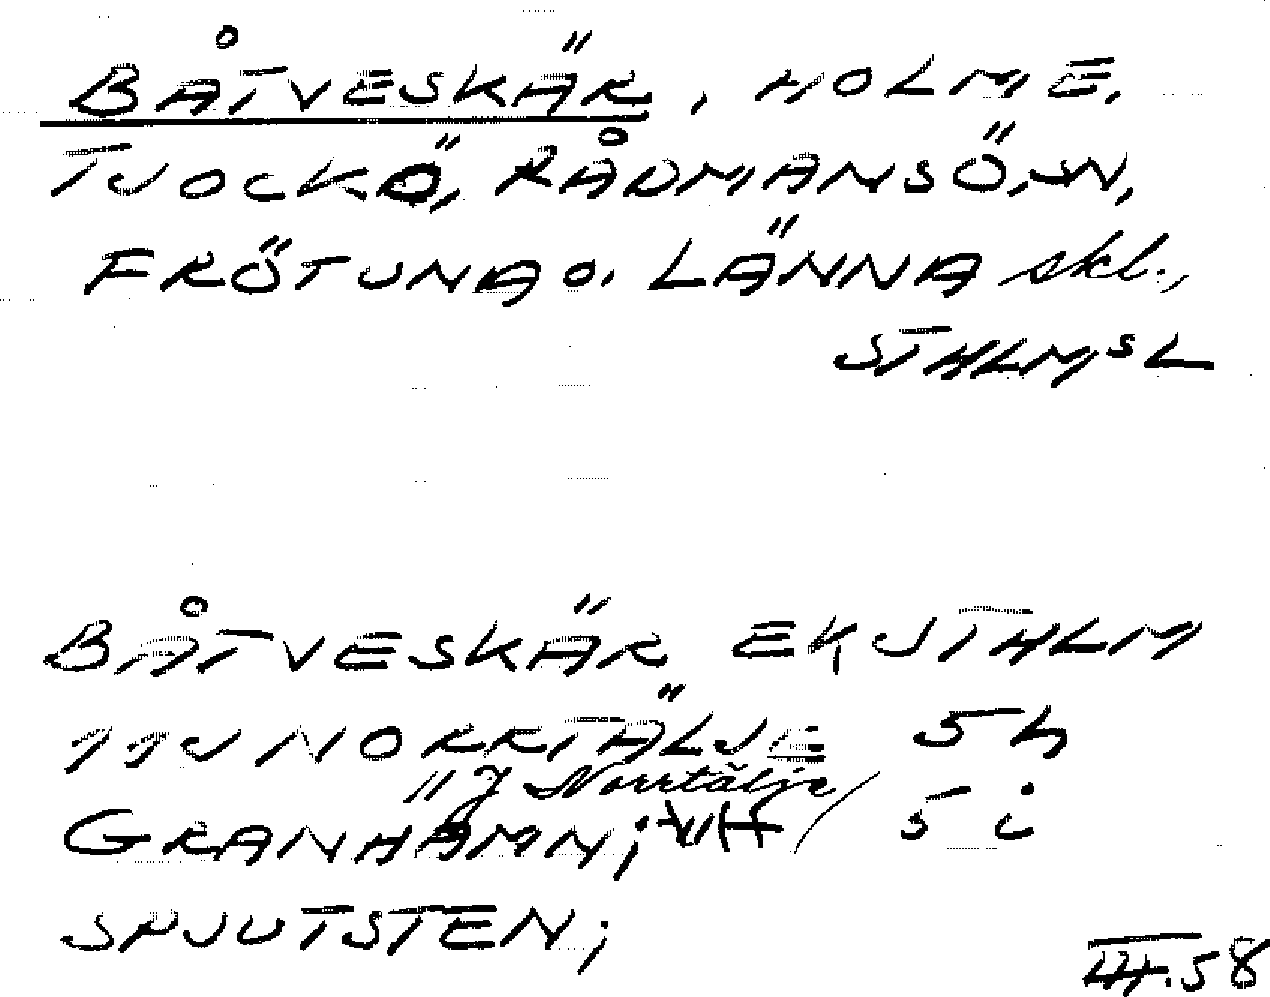 BÅTVESKÄR, HOLME,
TJOCKÖ, RÅDMANSÖ SN,
FRÖTUNA O. LÄNNA skl.,
STHLMS L
BÅTVESKÄR EK STHLM
11J NORRTÄLJE 5 h
11 J Norrtälje
GRANHAMN; 5 i
SPJUTSTEN;
III.58